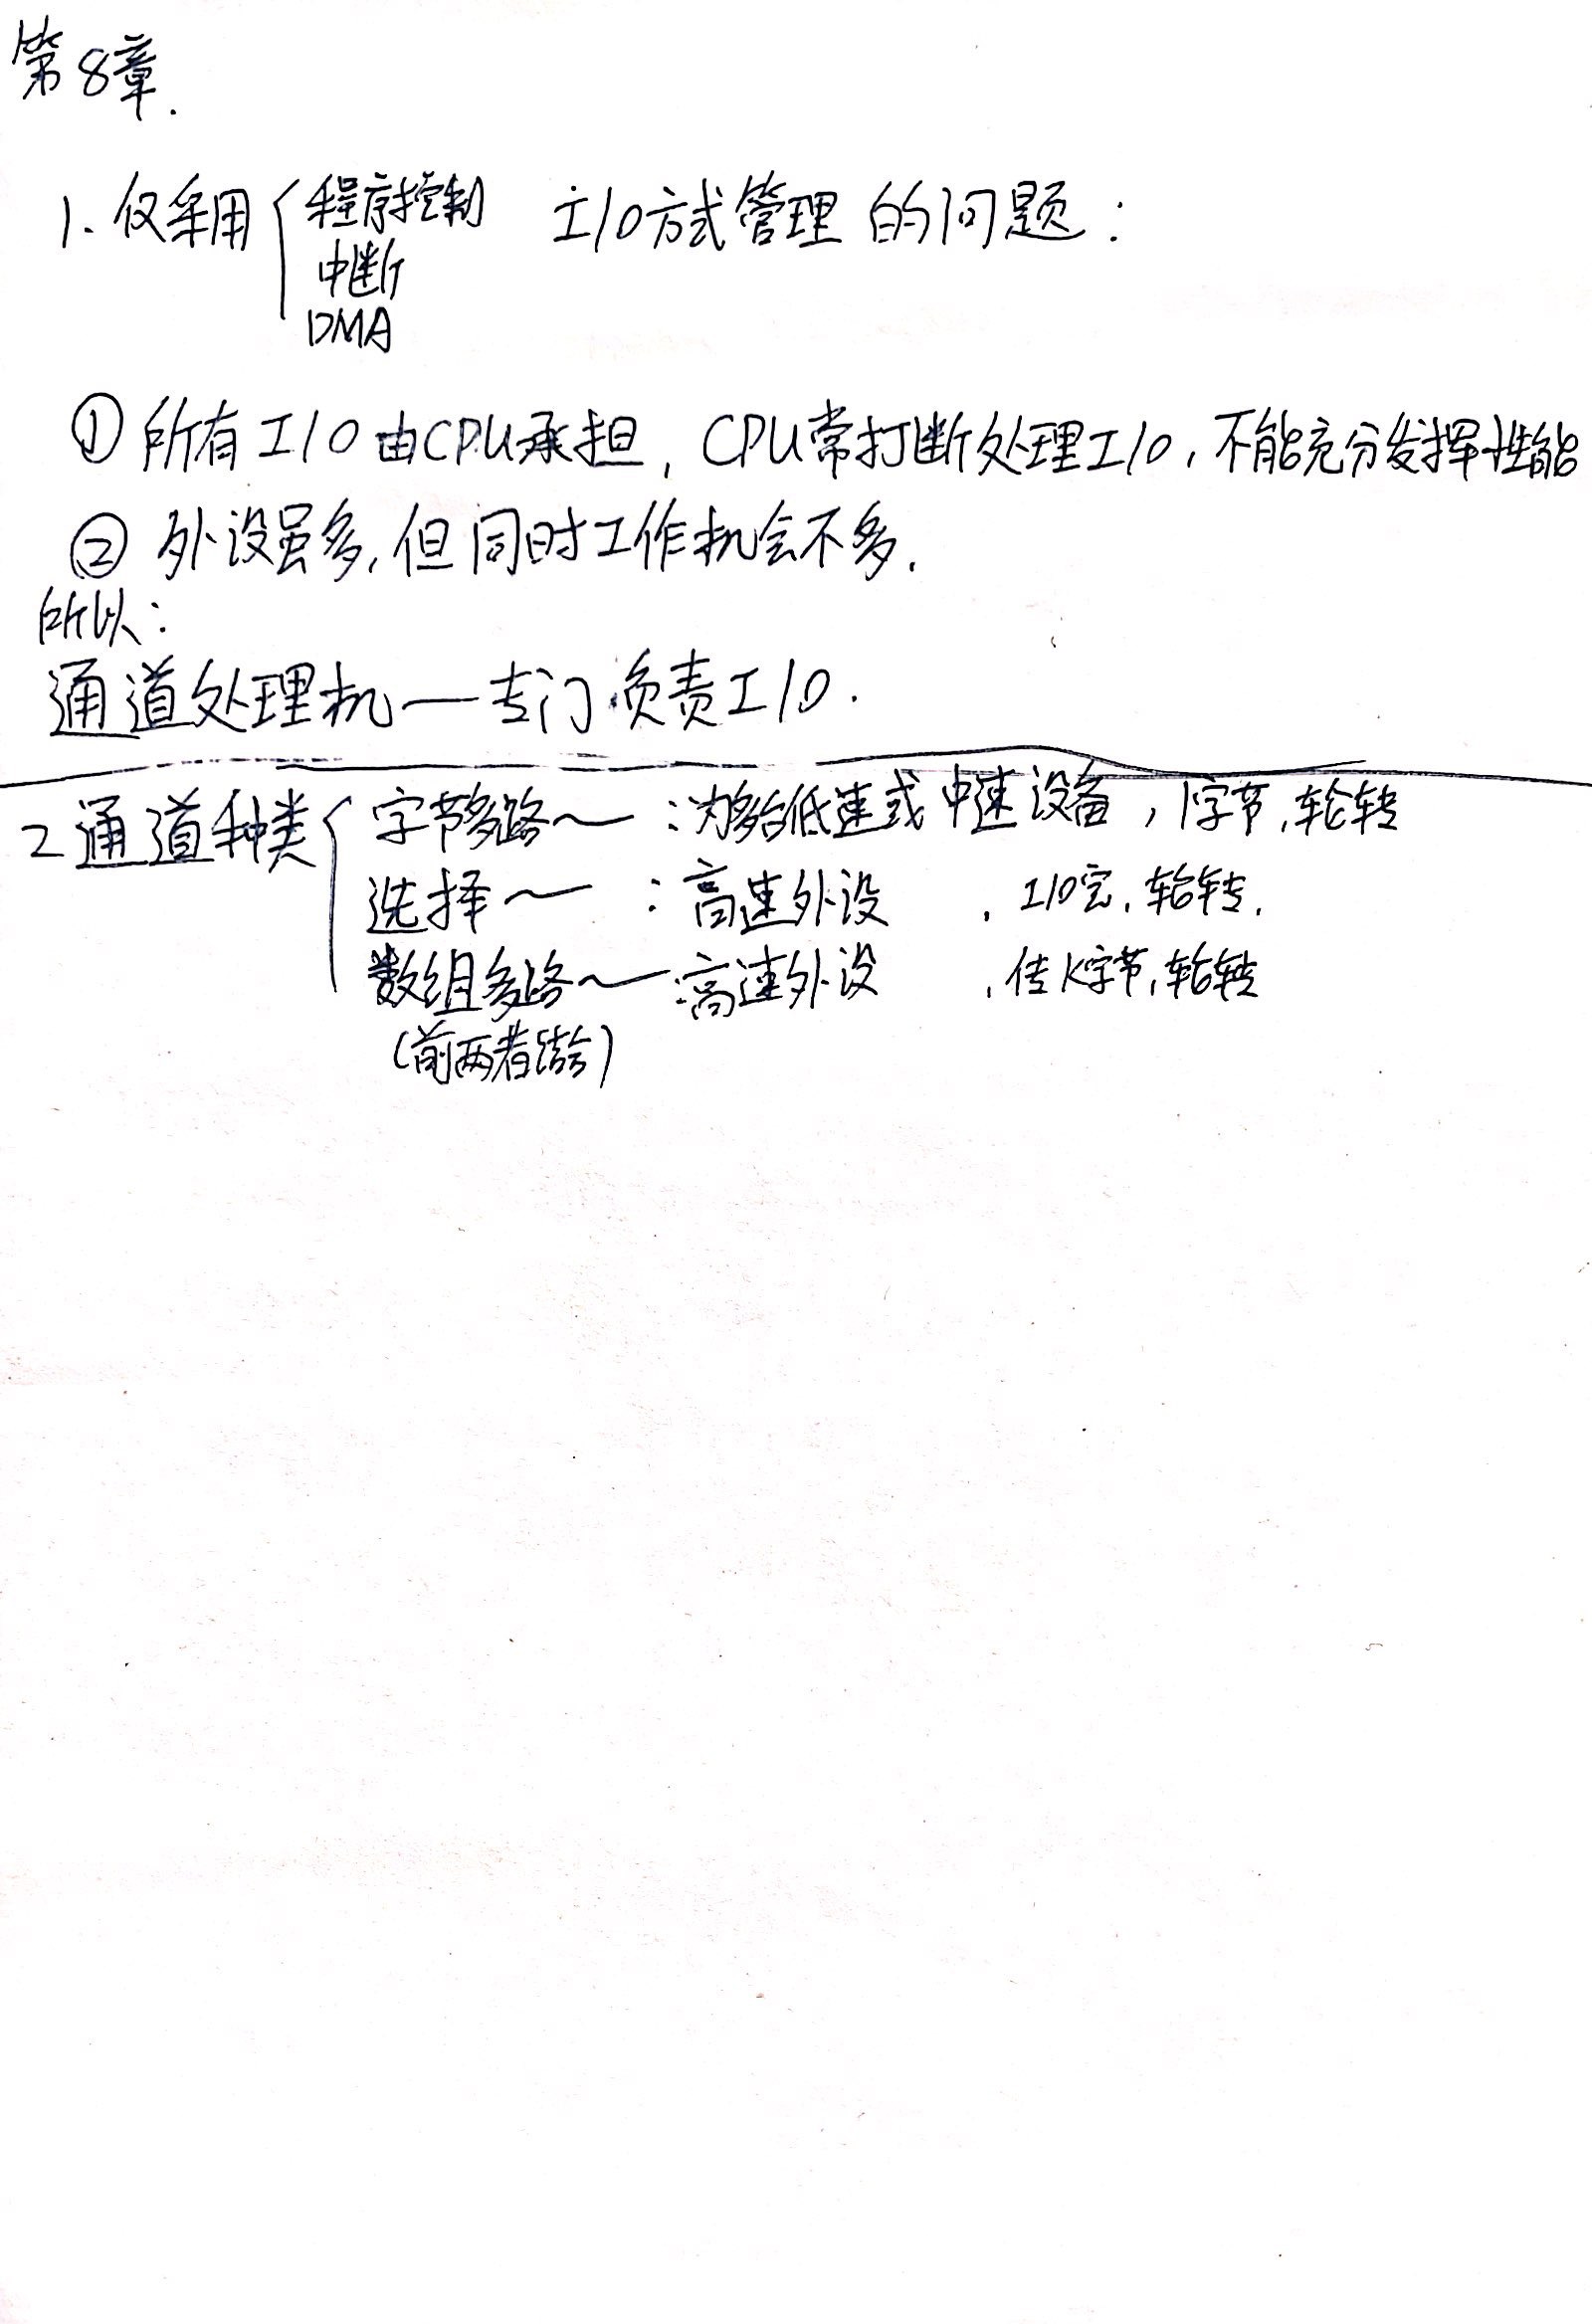 第8章.
1. 仅采用 { 程序控制 I/O方式管理的问题:
中断
DMA
① 所有I/O由CPU承担, CPU常打断处理I/O, 不能充分发挥性能
② 外设虽多, 但同时工作机会不多.
所以:
通道处理机—专门负责I/O.
2 通道种类 { 字节多路~ : 为多台低速或中速设备, 1字节, 轮转
选择~ : 高速外设 , I/O完, 轮转.
数组多路~ : 高速外设 , 传K字节, 轮转
(前两者结合)